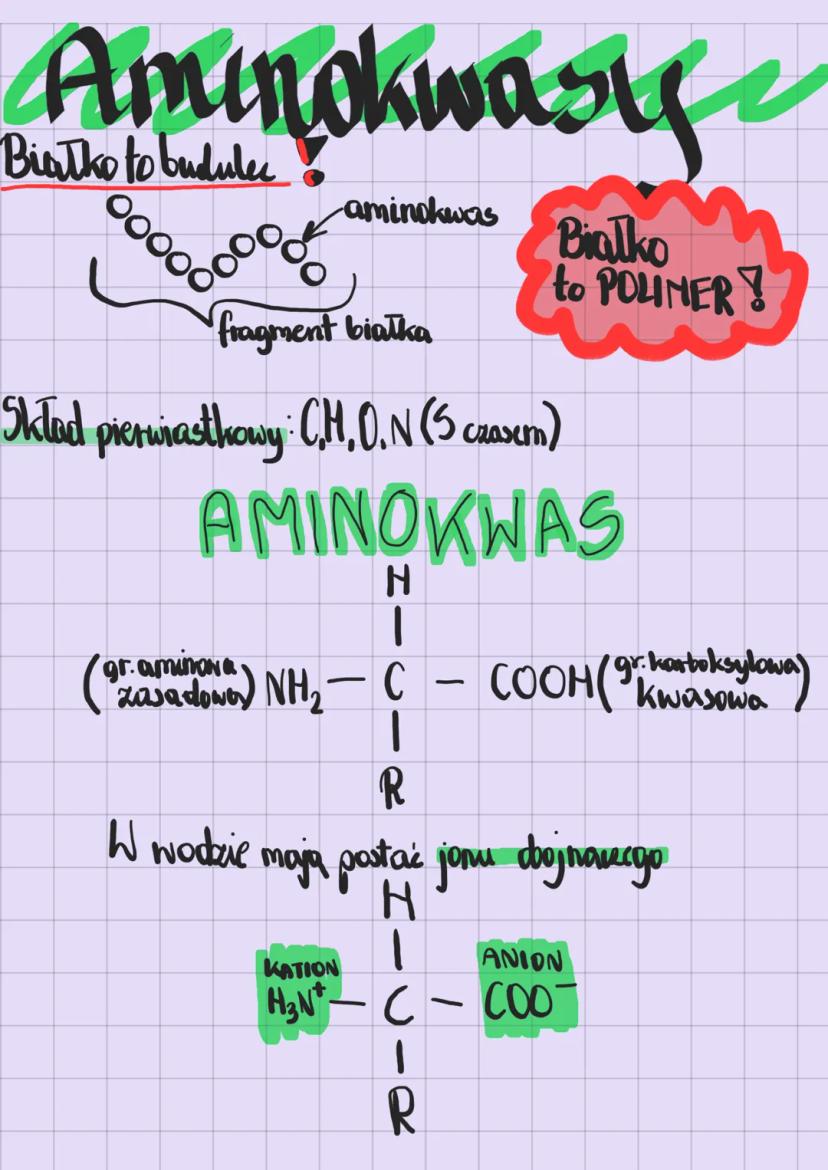 Aminokwasy
Białko to budulec!
aminokwas
fragment białka
Białko
to POLIMER!
Skład pierwiastkowy: C,H,O,N (S czasem)
AMINOKWAS
H
|
(gr. aminowa
zasadowa) NH₂ — C — COOH (gr. karboksylowa
kwasowa)
|
R
W wodzie mają postać jonu obojnaczego
H
|
KATION
ANION
H₃N⁺ — C — COO⁻
|
R